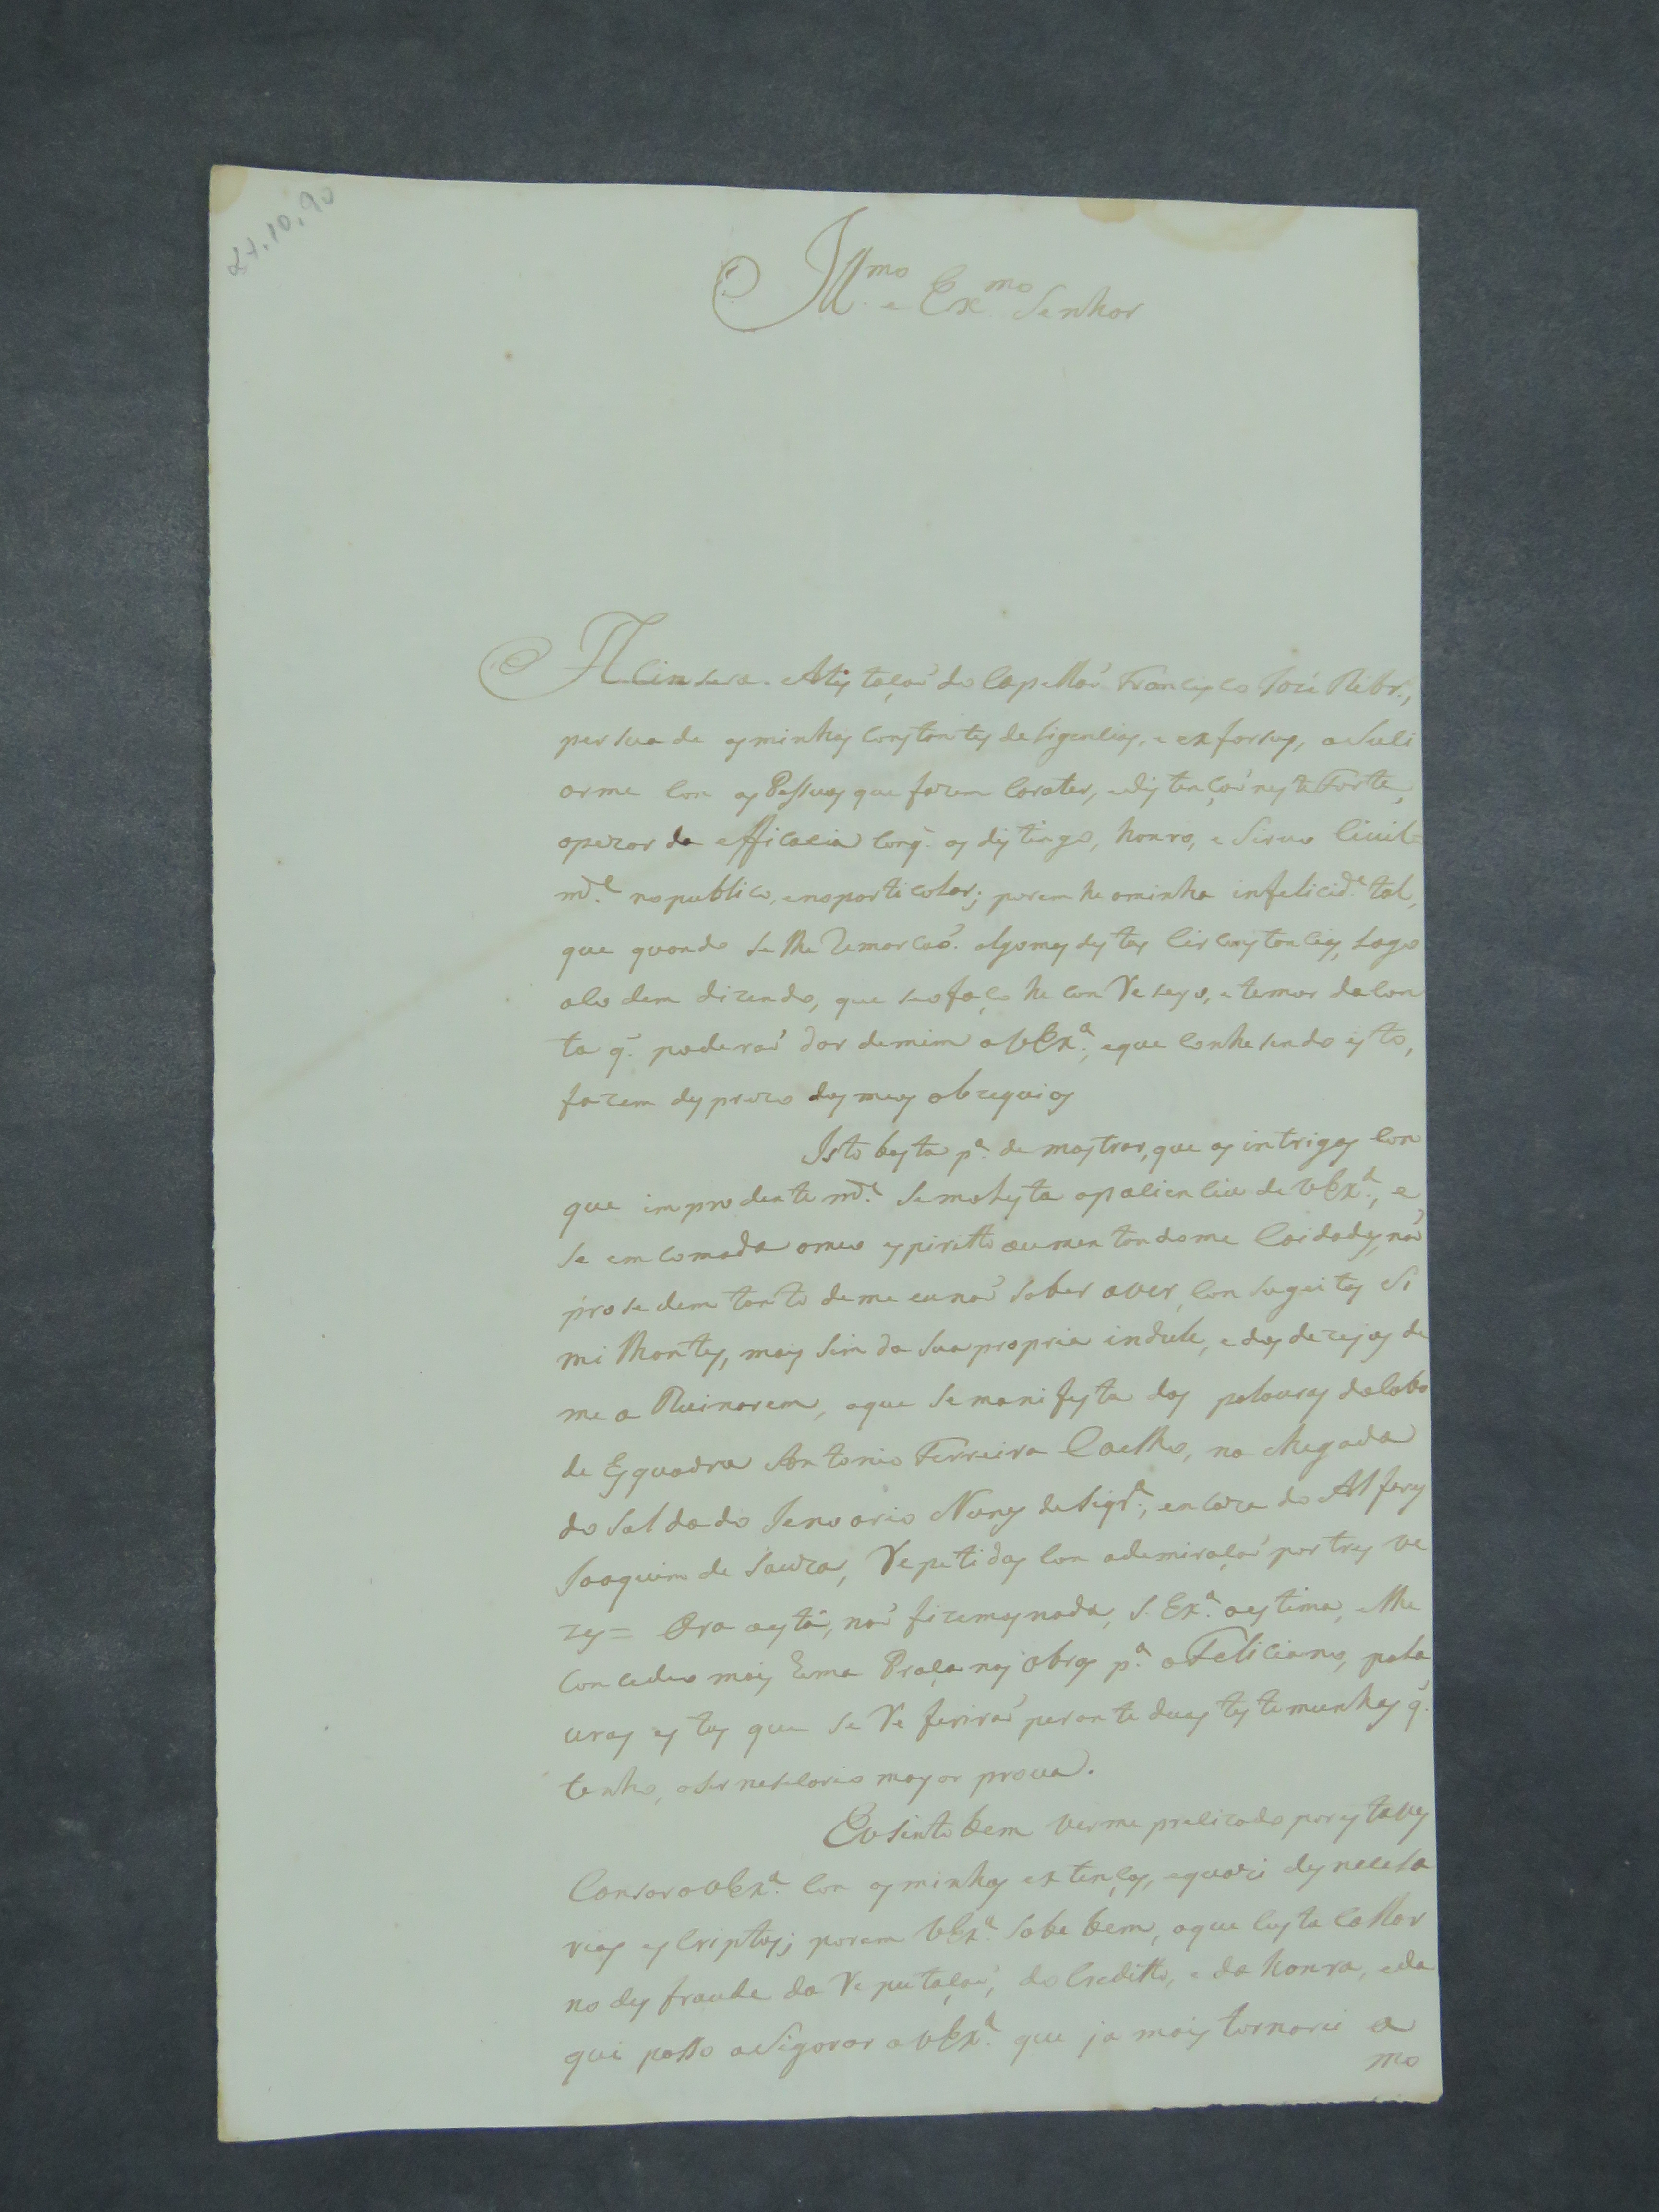 27.10.90
Ill.mo e Ex.mo Senhor
A Cinsera Atestaçaõ do Capellaõ Francisco Jozé Ribr.,
persuade as minhas constantes deligencias, e exforsus, a Suli
arme con as Pessuas que fazem Carater, edistençaõ neste Forte,
apezar da efficacia conq̃ as distingo, honro, e Siruo Ciuil=
md.e no publico, enoparticolar; porem he aminha infelicid.e tal,
que quando se lhe Remarcaõ algomas destas Circonstoncias, logo
alo dem dizendo, que seofaço he con Reseyo, e temor dacon
ta q̃ poderaõ dar demim a VEx.a, eque conhesendo isto,
fazem desprezo dos meus obzequios
Isto basta p.a de mostrar, que as intrigas con
que improdente md.e Semolesta apaciencia de VEx.a, e
se emcomoda omeu espiritto aumentandome Coidados, naõ
prosedem tanto deme eunaõ saber aver, con Sugeitos Si
milhontes, mais sim da sua propria indule, e dos dezejos de
me a Ruinarem, oque se manifesta das palauras docabo
de Esquadra Antonio Ferreira Coelho, na chegada
do Saldado Jenoario Nunes deSiqr.a, encaza do Alferes
Joaquim de Sauza, Repetidas con ademiraçaõ por tres ve
zes = Ora estâ, naõ fizemos nada, S. Ex.a oestima, elhe
Concedeo mais huma Praça nas obras p.a oFeliciano, pala
uras estas que se Referiraõ perante duas testemunhas q̃
tenho, aser nesesario mayor proua.
Eu sinto bem verme precizado por esta ves
Cansar aVEx.a con as minhas extenças, equazi desnecesa
rias escriptas; porem VEx.a sabe bem, oque custa callar
no desfraude da Reputaçaõ, do Creditto, e da honra, eda
qui posso aSigorar a VEx.a que ja mais tornarei a
mo